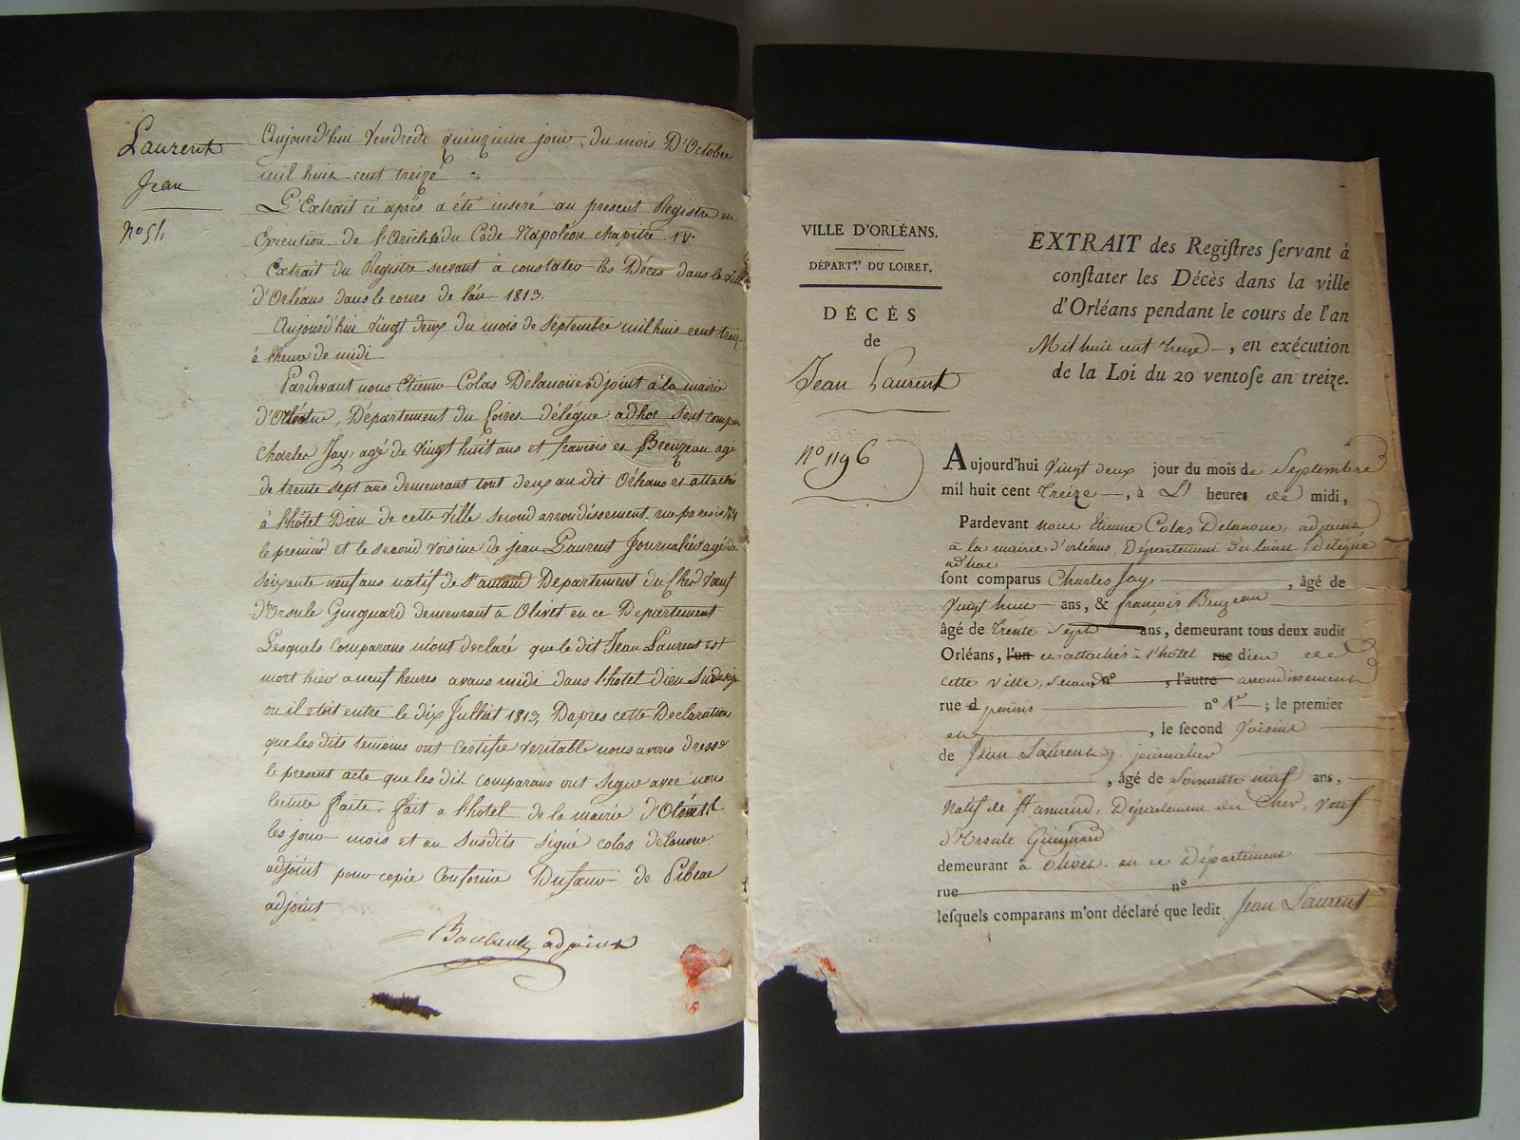 Laurent
Jean
n° 51
Aujourd'hui Vendredi quinzieme jour du mois D'Octobre
mil huit cent treize
L'Extrait ci après a été inseré au present Registre en
Execution de l'Article du Code Napoléon chapitre IV.
Extrait du Registre servant à constater les Décès dans la Ville
d'Orléans dans le cours de l'an 1813.
Aujourd'hui vingt deux du mois de Septembre mil huit cent treize
à l'heure de midi
Pardevant nous Etienne Colas Delanoue adjoint à la mairie
d'Orléans, Département du Loiret délégué adhoc sont comparus
Charles Jay, agé de vingt huit ans et françois Breuzeau agé
de trente sept ans demeurant tout deux au dit Orléans et attachés
à l'hôtel Dieu de cette ville second arrondissement, rue parvis
le premier et le second voisins de jean Laurent Journalier agé de
soixante neuf ans natif de St amand Département du Cher Veuf
d'Ursule Guignard demeurant a Olivet en ce Departement
Lesquels comparans m'ont declaré que le dit Jean Laurent est
mort hier a neuf heures avant midi dans l'hotel Dieu Susdésigné
ou il etoit entré le dix Juillet 1813. Dapres cette Declaration
que les dits temoins ont certifié veritable nous avons dressé
le present acte que les dit comparans ont signé avec nous
lecture faite. fait a l'hotel de la mairie d'Orléans
les jour mois et an susdits signé colas delanoue
adjoint pour copie Conforme Dufaur de Pibrac
adjoint
adjoint
VILLE D'ORLÉANS.
DÉPART.nt DU LOIRET.
DÉCÈS
de
Jean Laurent
N° 1196
EXTRAIT des Regiſtres ſervant à
conſtater les Décès dans la ville
d'Orléans pendant le cours de l'an
Mil huit cent treize, en exécution
de la Loi du 20 ventoſe an treize.
Aujourd'hui vingt deux jour du mois de Septembre
mil huit cent treize, à L' heure de midi,
Pardevant nous Etienne Colas Delanoue, adjoint
à la mairie d'orléans, Département du loiret délégué
ad hoc
ſont comparus Charles Jay, âgé de
vingt huit ans, & françois Breuzeau
âgé de trente sept ans, demeurant tous deux audit
Orléans, l'un et attachés à l'hôtel rue dieu de
cette ville, second n° , l'autre arrondissement
rue d parvis n° 1er ; le premier
et , le ſecond voisins
de Jean Laurent, journalier
, âgé de soixante neuf ans,
natif de St amand, Département du Cher, veuf
d'Ursule Guignard
demeurant à olivet en ce Département
rue n°
leſquels comparans m'ont déclaré que ledit Jean Laurent